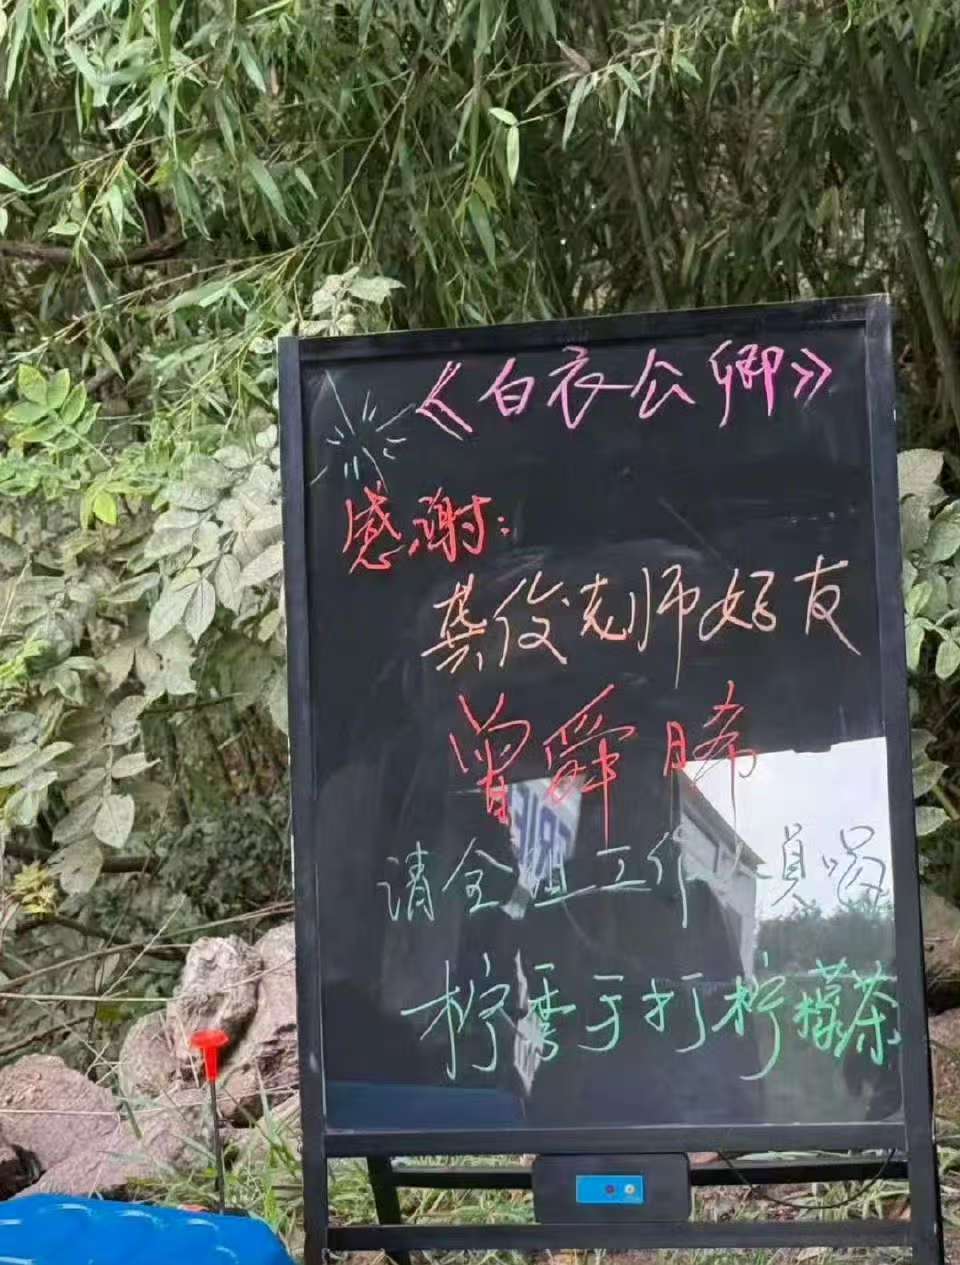 《白衣公卿》
感谢:
龚俊老师好友
曾舜晞
请全组工作人员喝
柠季手打柠檬茶